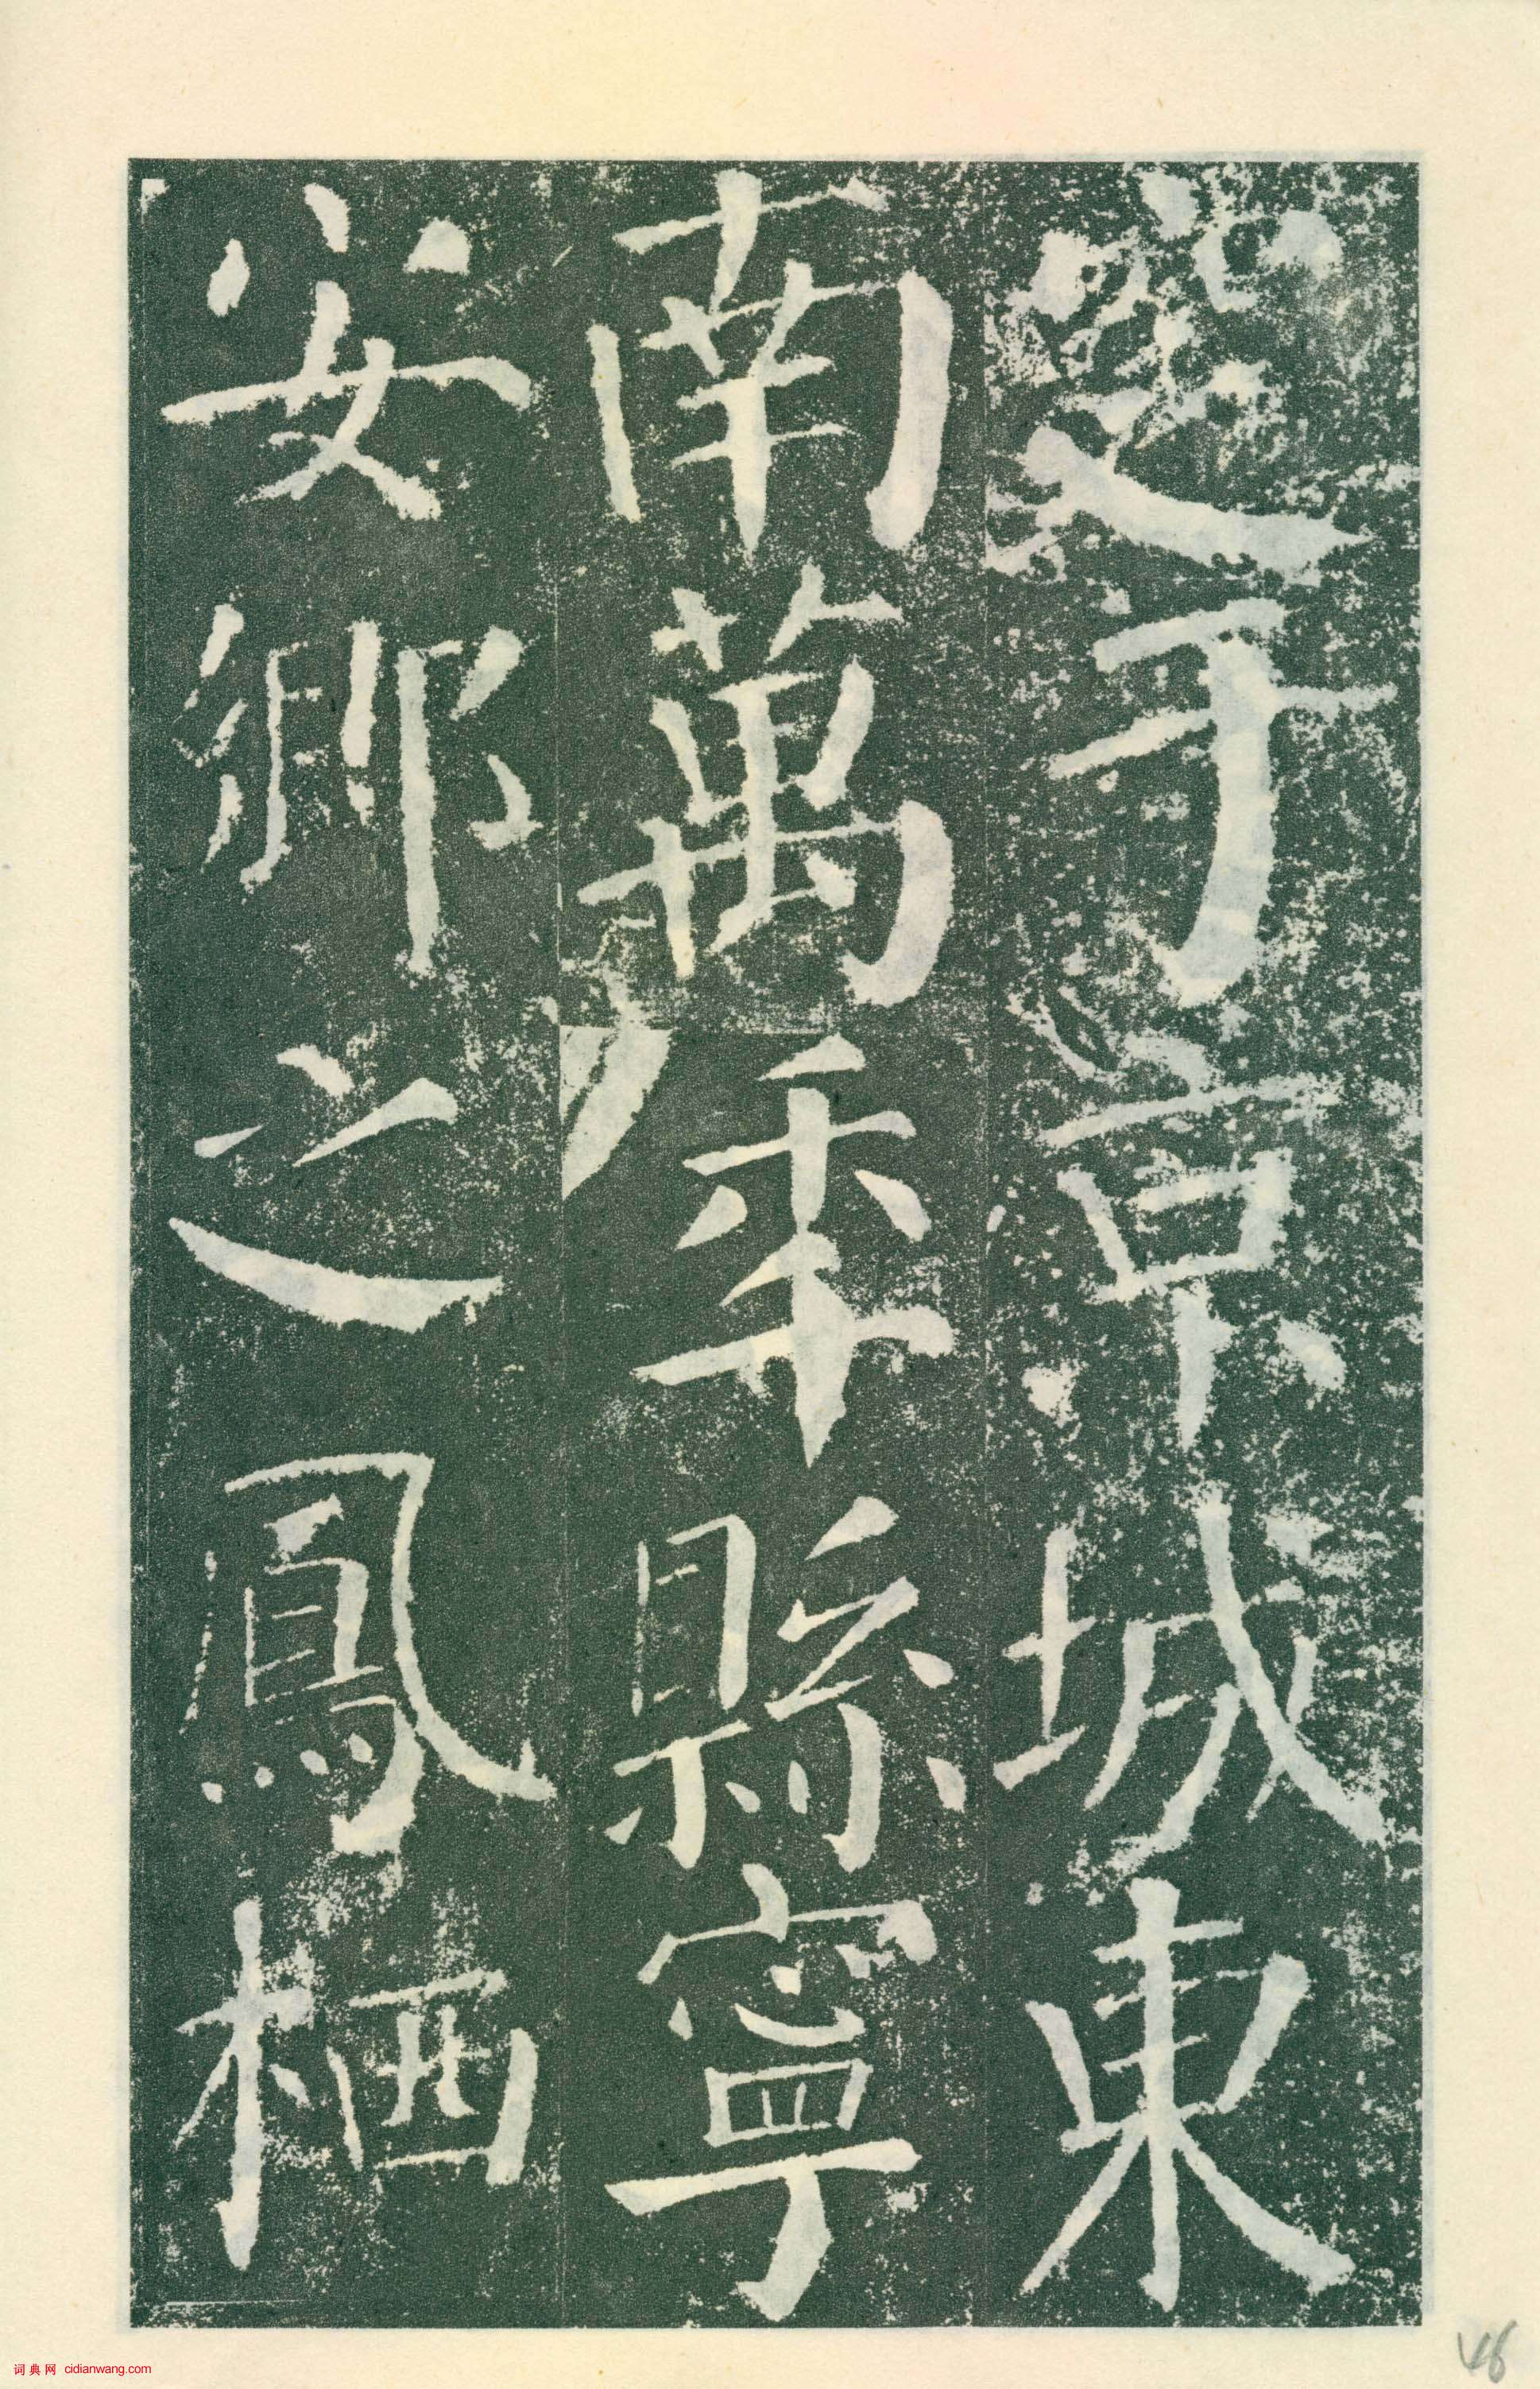 遷于京城東
南萬年縣寧
安鄉之鳳栖
词典网 cidianwang.com
46